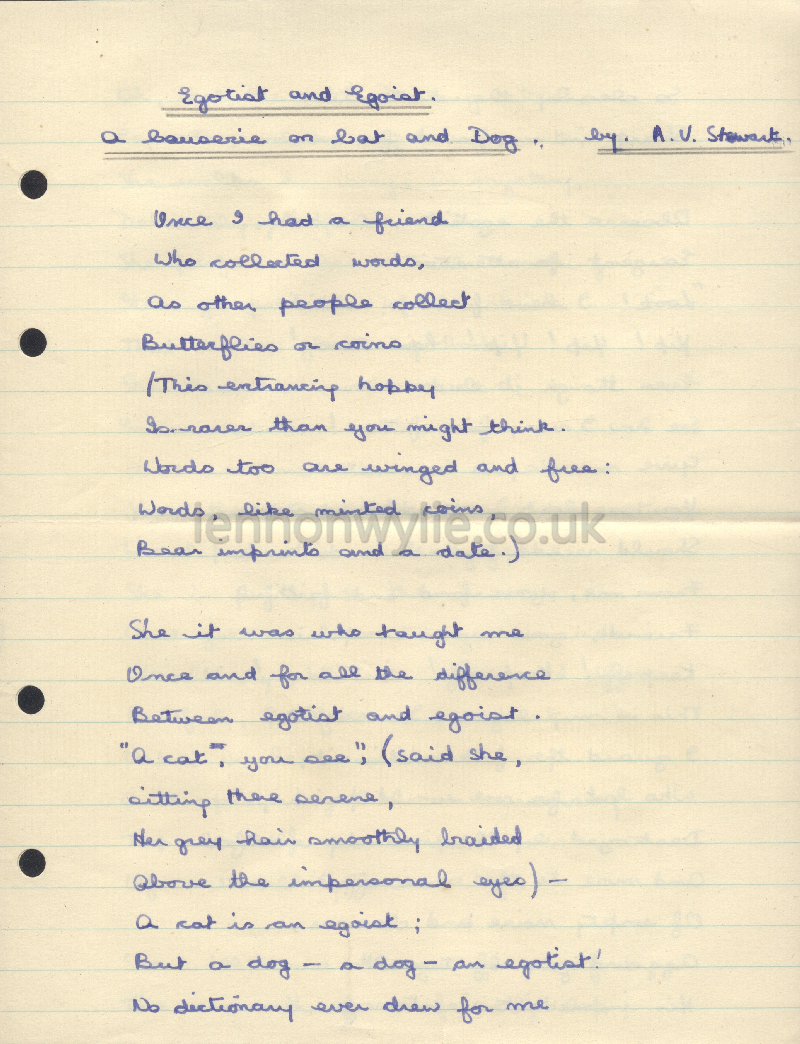 Egotist and Egoist.
A Causerie on Cat and Dog. by. A. V. Stewart.
Once I had a friend
Who collected words,
As other people collect
Butterflies or coins
(This entrancing hoppey
Is rarer than you might think.
Words too are winged and free:
Words, like minted coins,
Bear imprints and a date.)
lennonwylie.co.uk
She it was who taught me
Once and for all the difference
Between egotist and egoist.
"A cat", you see", (said she,
sitting there serene,
Her grey hair smoothly braided
Above the impersonal eyes) —
A cat is an egoist;
But a dog — a dog — an egotist!
No dictionary ever drew for me